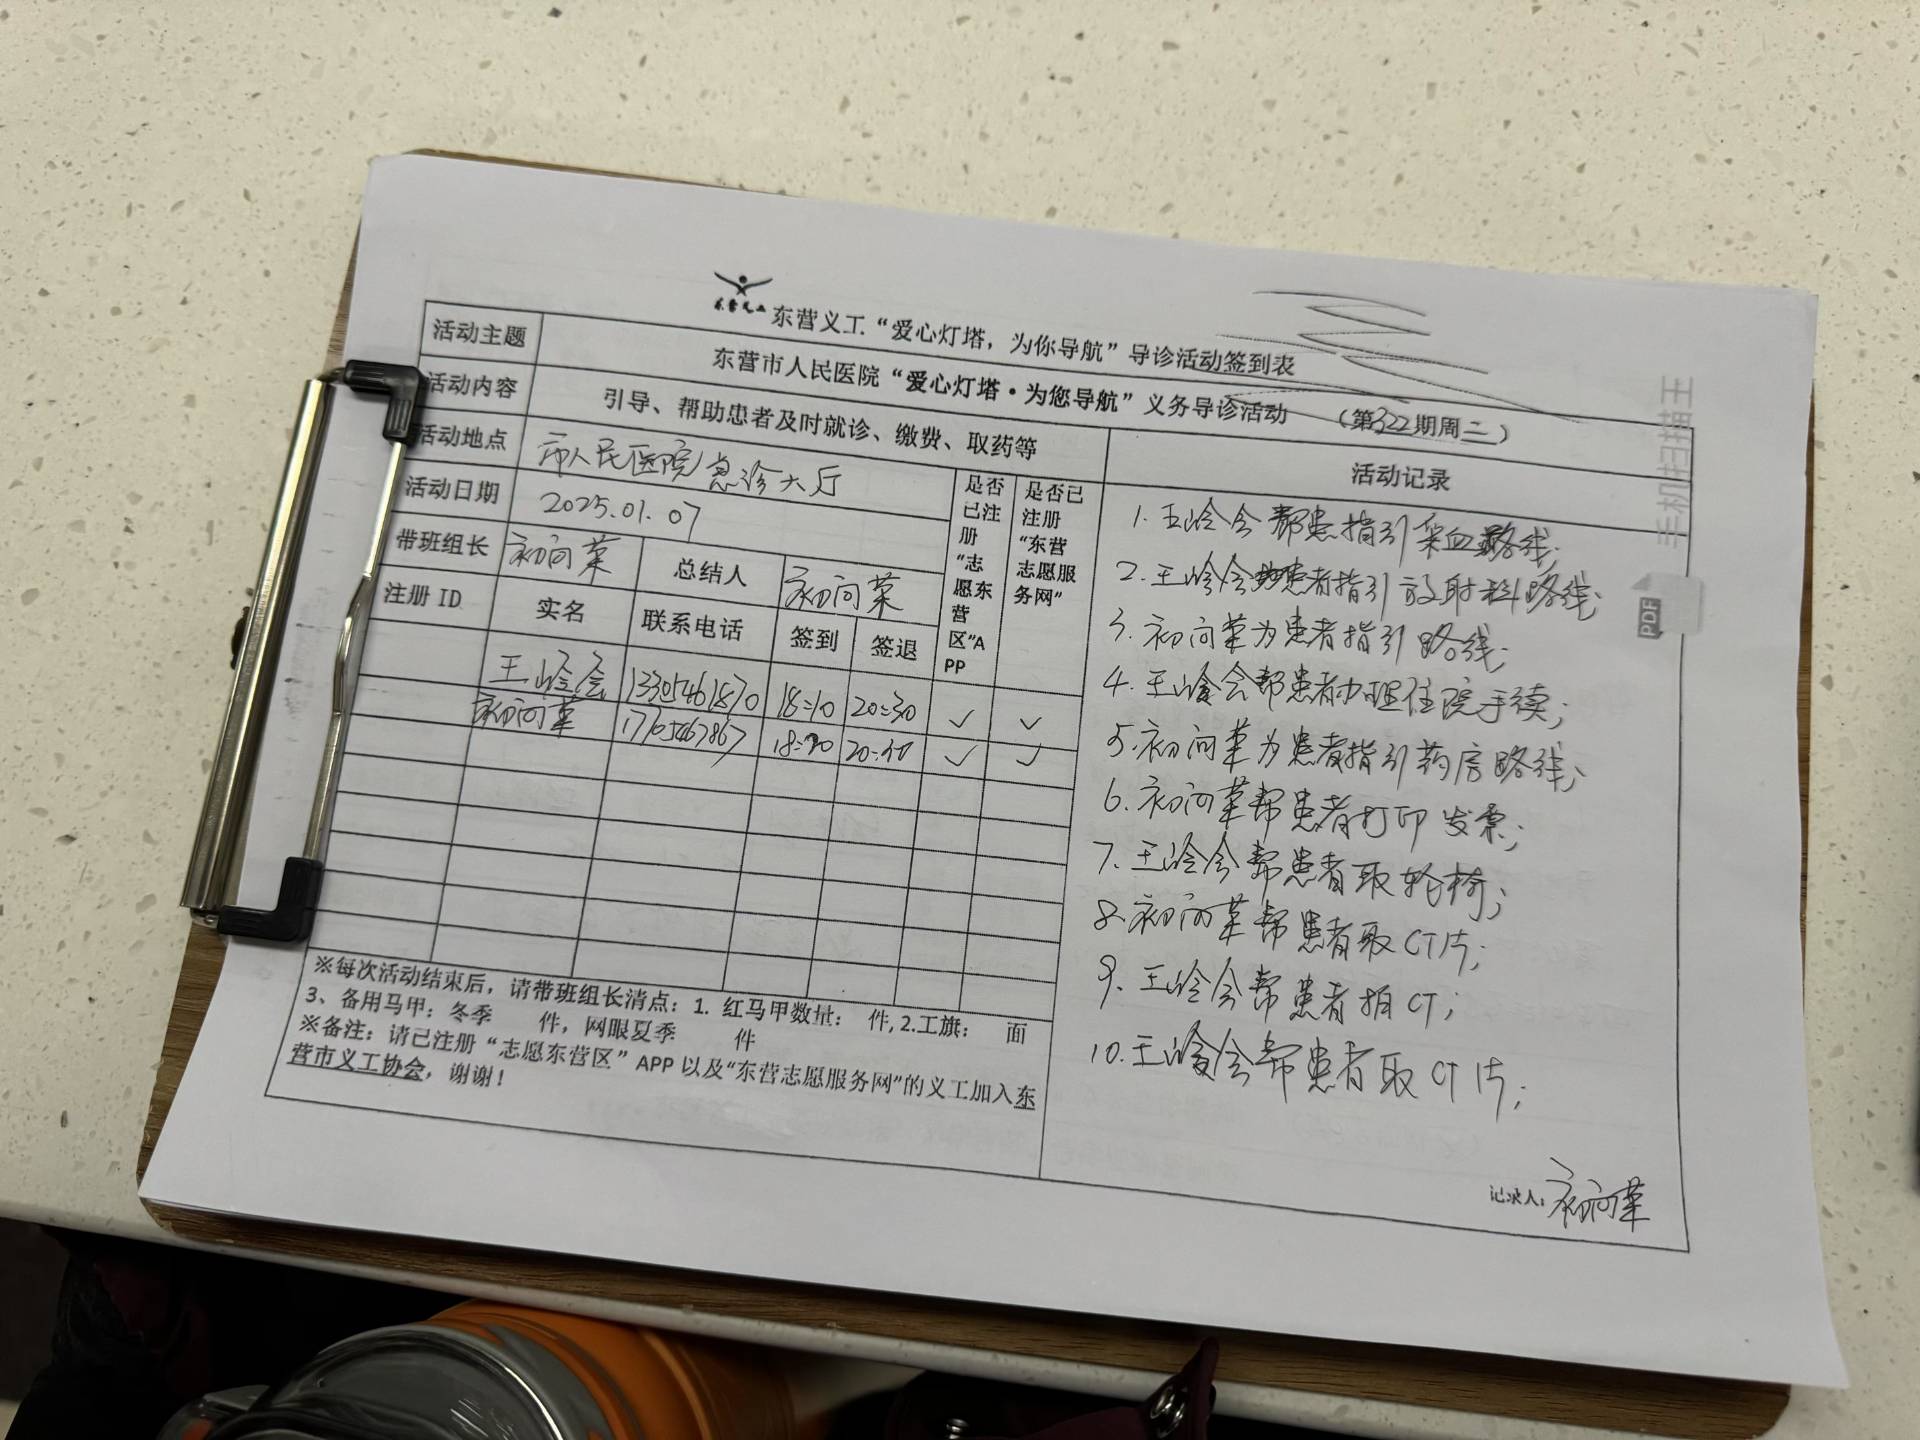 东营义工
东营义工“爱心灯塔，为你导航”导诊活动签到表
活动主题
东营市人民医院“爱心灯塔·为您导航”义务导诊活动 （第322期周二）
活动内容
引导、帮助患者及时就诊、缴费、取药等
活动地点
市人民医院急诊大厅
活动日期
2025.01.07
带班组长
初向菜
总结人
初向菜
是否已注册“志愿东营区”APP
是否已注册“东营志愿服务网”
注册 ID
实名
联系电话
签到
签退
王崯会 13305461870 18:10 20:30 ✓ ✓
初向菜 17705467867 20:30 ✓ ✓
※每次活动结束后，请带班组长清点：1. 红马甲数量： 件, 2.工旗： 面
3、备用马甲：冬季 件，网眼夏季 件
※备注：请已注册“志愿东营区”APP 以及“东营志愿服务网”的义工加入东
营市义工协会，谢谢！
活动记录
1. 王崯会帮患指引采血路线;
2. 王崯会为患者指引放射科路线;
3. 初向菜为患者指引路线;
4. 王崯会帮患者办理住院手续;
5. 初向菜为患者指引药房路线;
6. 初向菜帮患者打印发票;
7. 王崯会帮患者取轮椅;
8. 初向菜帮患者取CT片;
9. 王崯会帮患者拍CT;
10. 王崯会帮患者取CT片;
记录人：初向菜
手机扫描王
PDF